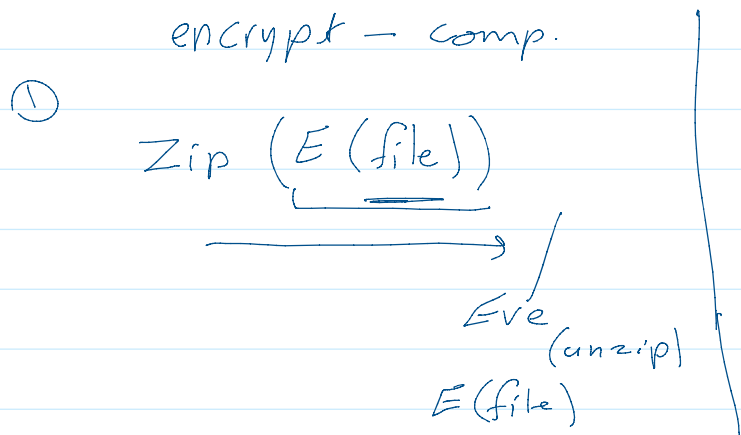 encrypt - comp.
①
Zip (E (file))
Eve
(unzip)
E(file)